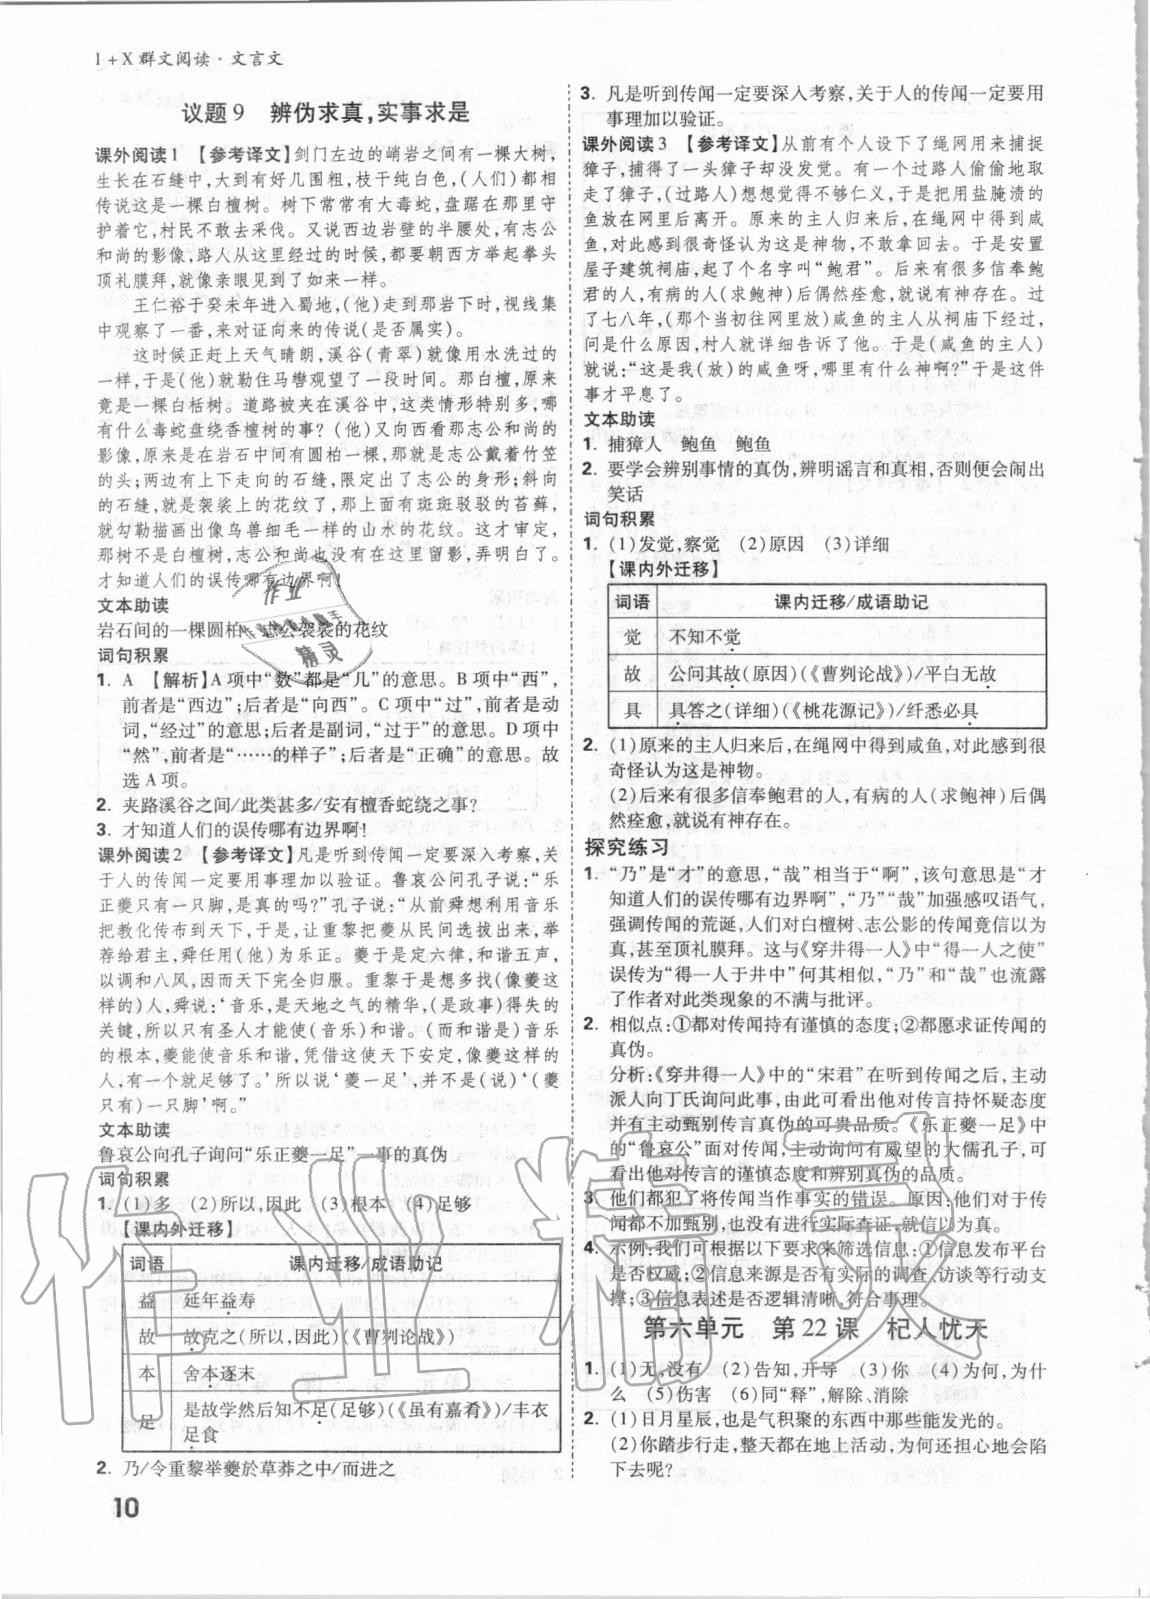 1+X群文阅读·文言文
议题9 辨伪求真,实事求是
课外阅读1 【参考译文】剑门左边的峭岩之间有一棵大树,
生长在石缝中,大到有好几围粗,枝干纯白色,(人们)都相
传说这是一棵白檀树。树下常常有大毒蛇,盘踞在那里守
护着它,村民不敢去采伐。又说西边岩壁的半腰处,有志公
和尚的影像,路人从这里经过的时候,都要朝西方举起拳头
顶礼膜拜,就像亲眼见到了如来一样。
王仁裕于癸未年进入蜀地,(他)走到那岩下时,视线集
中观察了一番,来对证向来的传说(是否属实)。
这时候正赶上天气晴朗,溪谷(青翠)就像用水洗过的
一样,于是(他)就勒住马辔观望了一段时间。那白檀,原来
竟是一棵白栝树。道路被夹在溪谷中,这类情形特别多,哪
有什么毒蛇盘绕香檀树的事?(他)又向西看那志公和尚的
影像,原来是在岩石中间有圆柏一棵,这就是志公戴着竹笠
的头;两边有上下走向的石缝,限定出了志公的身形;斜向
的石缝,就是袈裟上的花纹了!上面有斑斑驳驳的苔藓,
就勾勒描画出像鸟兽细毛一样的山水的花纹。这才审定,
那树不是白檀树,志公和尚也没有在这里留影,弄明白了。
才知道人们的误传哪有边界啊!
文本助读
岩石间的一棵圆柏 志公袈裟的花纹
词句积累
1. A 【解析】A项中“数”都是“几”的意思。B项中“西”,
前者是“西边”;后者是“向西”。C项中“过”,前者是动
词,“经过”的意思;后者是副词,“过于”的意思。D项中
“然”,前者是“……的样子”;后者是“正确”的意思。故
选A项。
2. 夹路溪谷之间/此类甚多/安有檀香蛇绕之事?
3. 才知道人们的误传哪有边界啊!
课外阅读2 【参考译文】凡是听到传闻一定要深入考察,关
于人的传闻一定要用事理加以验证。鲁哀公问孔子说:“乐
正夔只有一只脚,是真的吗?”孔子说:“从前舜想利用音乐
把教化传布到天下,于是,让重黎把夔从民间选拔出来,举
荐给君主,舜任用(他)为乐正。夔于是定六律,和谐五声,
以调和八风,因而天下完全归服。重黎于是想多找(像夔这
样的)人,舜说:‘音乐,是天地之气的精华,(是政事)得失的
关键,所以只有圣人才能使(音乐)和谐。(而和谐是)音乐
的根本,夔能使音乐和谐,凭借这使天下安定,像夔这样的
人,有一个就足够了。’所以说‘夔一足’,并不是(说)‘(夔
只有)一只脚’啊。”
文本助读
鲁哀公向孔子询问“乐正夔一足”一事的真伪
词句积累
1. (1)多 (2)所以,因此 (3)根本 (4)足够
【课内外迁移】
词语 课内迁移/成语助记
益 延年益寿
故 故克之(所以,因此)(《曹刿论战》)
本 舍本逐末
足 是故学然后知不足(足够)(《虽有嘉肴》)/丰衣
足食
2. 乃/令重黎举夔於草莽之中/而进之
10
3. 凡是听到传闻一定要深入考察,关于人的传闻一定要用
事理加以验证。
课外阅读3 【参考译文】从前有个人设下了绳网用来捕捉
獐子,捕得了一头獐子却没发觉。有一个过路人偷偷地取
走了獐子,(过路人)想想觉得不够仁义,于是把用盐腌渍的
鱼放在网里后离开。原来的主人归来后,在绳网中得到咸
鱼,对此感到很奇怪认为这是神物,不敢拿回去。于是安置
屋子建筑祠庙,起了个名字叫“鲍君”。后来有很多信奉鲍
君的人,有病的人(求鲍神)后偶然痊愈,就说有神存在。过
了七八年,(那个当初往网里放)咸鱼的主人从祠庙下经过,
问是什么原因,村人就详细告诉了他。于是(咸鱼的主人)
就说:“这是我(放)的咸鱼呀,哪里有什么神啊?”于是这件
事才平息了。
文本助读
1. 捕獐人 鲍鱼 鲍鱼
2. 要学会辨别事情的真伪,辨明谣言和真相,否则便会闹出
笑话
词句积累
1. (1)发觉,察觉 (2)原因 (3)详细
【课内外迁移】
词语 课内迁移/成语助记
觉 不知不觉
故 公问其故(原因)(《曹刿论战》)/平白无故
具 具答之(详细)(《桃花源记》)/纤悉必具
2. (1)原来的主人归来后,在绳网中得到咸鱼,对此感到很
奇怪认为这是神物。
(2)后来有很多信奉鲍君的人,有病的人(求鲍神)后偶
然痊愈,就说有神存在。
探究练习
1. “乃”是“才”的意思,“哉”相当于“啊”,该句意思是“才
知道人们的误传哪有边界啊”,“乃”“哉”加强感叹语气,
强调传闻的荒诞,人们对白檀树、志公影的传闻竟信以为
真,甚至顶礼膜拜。这与《穿井得一人》中“得一人之使”
误传为“得一人于井中”何其相似,“乃”和“哉”也流露
了作者对此类现象的不满与批评。
2. 相似点:①都对传闻持有谨慎的态度;②都愿求证传闻的
真伪。
分析:《穿井得一人》中的“宋君”在听到传闻之后,主动
派人向丁氏询问此事,由此可看出他对传言持怀疑态度
并有主动甄别传言真伪的可贵品质。《乐正夔一足》中
的“鲁哀公”面对传闻,主动询问有威望的大儒孔子,可
看出他对传言的谨慎态度和辨别真伪的品质。
3. 他们都犯了将传闻当作事实的错误。原因:他们对于传
闻都不加甄别,也没有进行实际查证,就信以为真。
4. 示例:我们可根据以下要求来筛选信息:①信息发布平台
是否权威;②信息来源是否有实际的调查、访谈等行动支
撑;③信息表述是否逻辑清晰、符合事理。
第六单元 第22课 杞人忧天
1. (1)无,没有 (2)告知,开导 (3)你 (4)为何,为什
么 (5)伤害 (6)同“释”,解除、消除
2. (1)日月星辰,也是气积聚的东西中那些能发光的。
(2)你踏步行走,整天都在地上活动,为何还担心地会陷
下去呢?